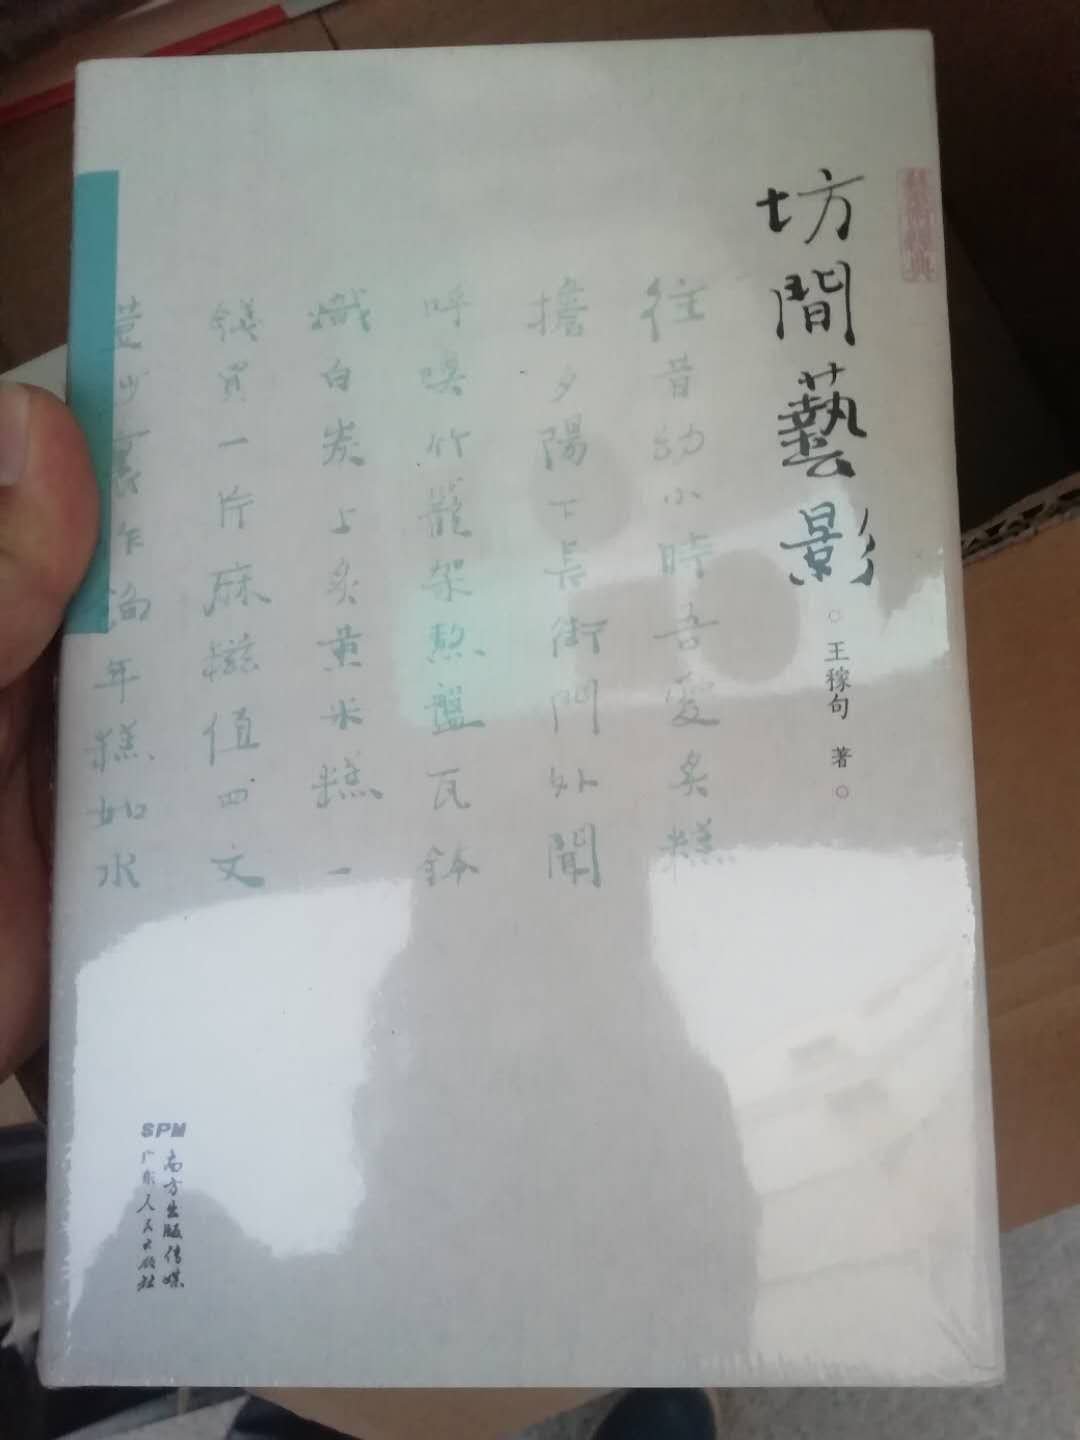 坊間藝影
王稼句 著
往昔幼小時吾愛炙糕
擔夕陽下長街門外聞
呼喚竹籠架熬盤瓦鉢
熾白炭上炙黃米糕一
錢買一片麻糍值四文
年糕如水
SPM
南方出版传媒
广东人民出版社